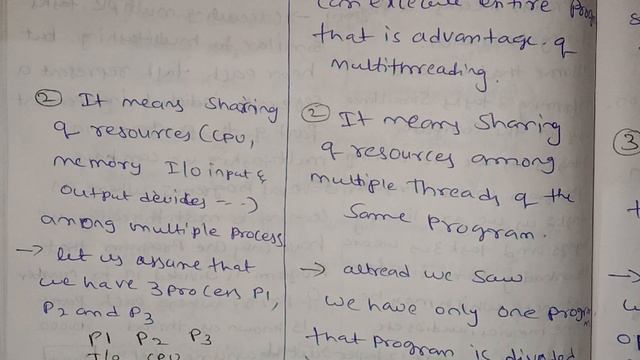 ② It means sharing
of resources (CPU,
memory I/o input &
output devides -- )
among multiple process
→ let us assume that
we have 3 process P1,
P2 and P3
P1 P2 P3
I/o CPU
can execute entire
that is advantage. of
multithreading.
② It means sharing
of resources among
multiple threads of the
same program.
→ alread we saw
we have only one program
that program is divided
3
→